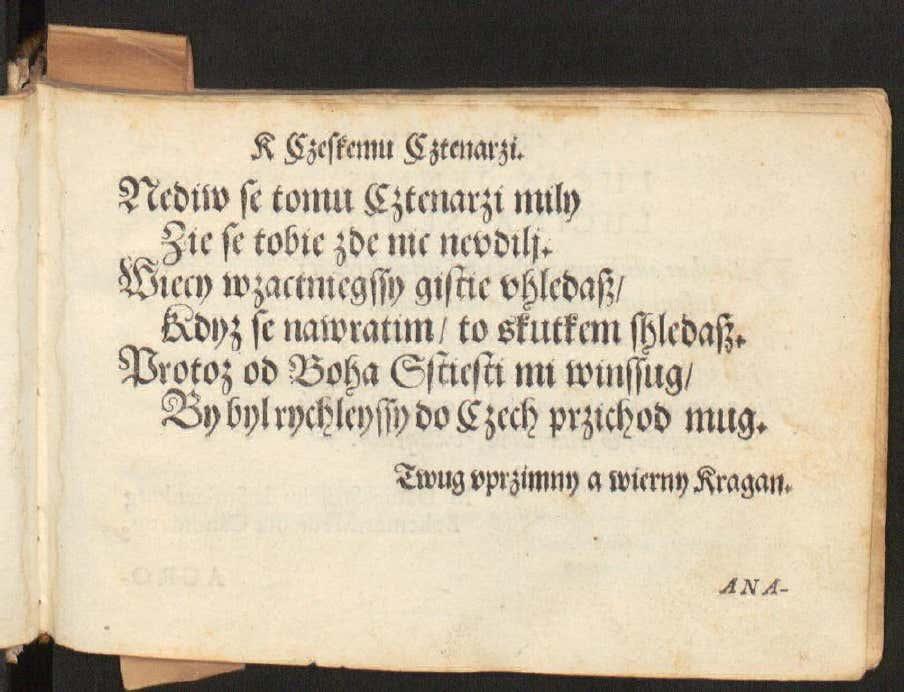 K Czeſkemu Cztenarzi.
Nediw ſe tomu Cztenarzi mily
Zie ſe tobie zde nic nevdilj.
Wiecy wzactniegſſy giſtie vhledaß/
Kdyz ſe nawratim/ to skutkem ſhledaß.
Protoz od Boha Sſtieſti mi winſſug/
By byl rychleyſſy do Czech przichod mug.
Twug vprzimny a wierny Kragan.
ANA-